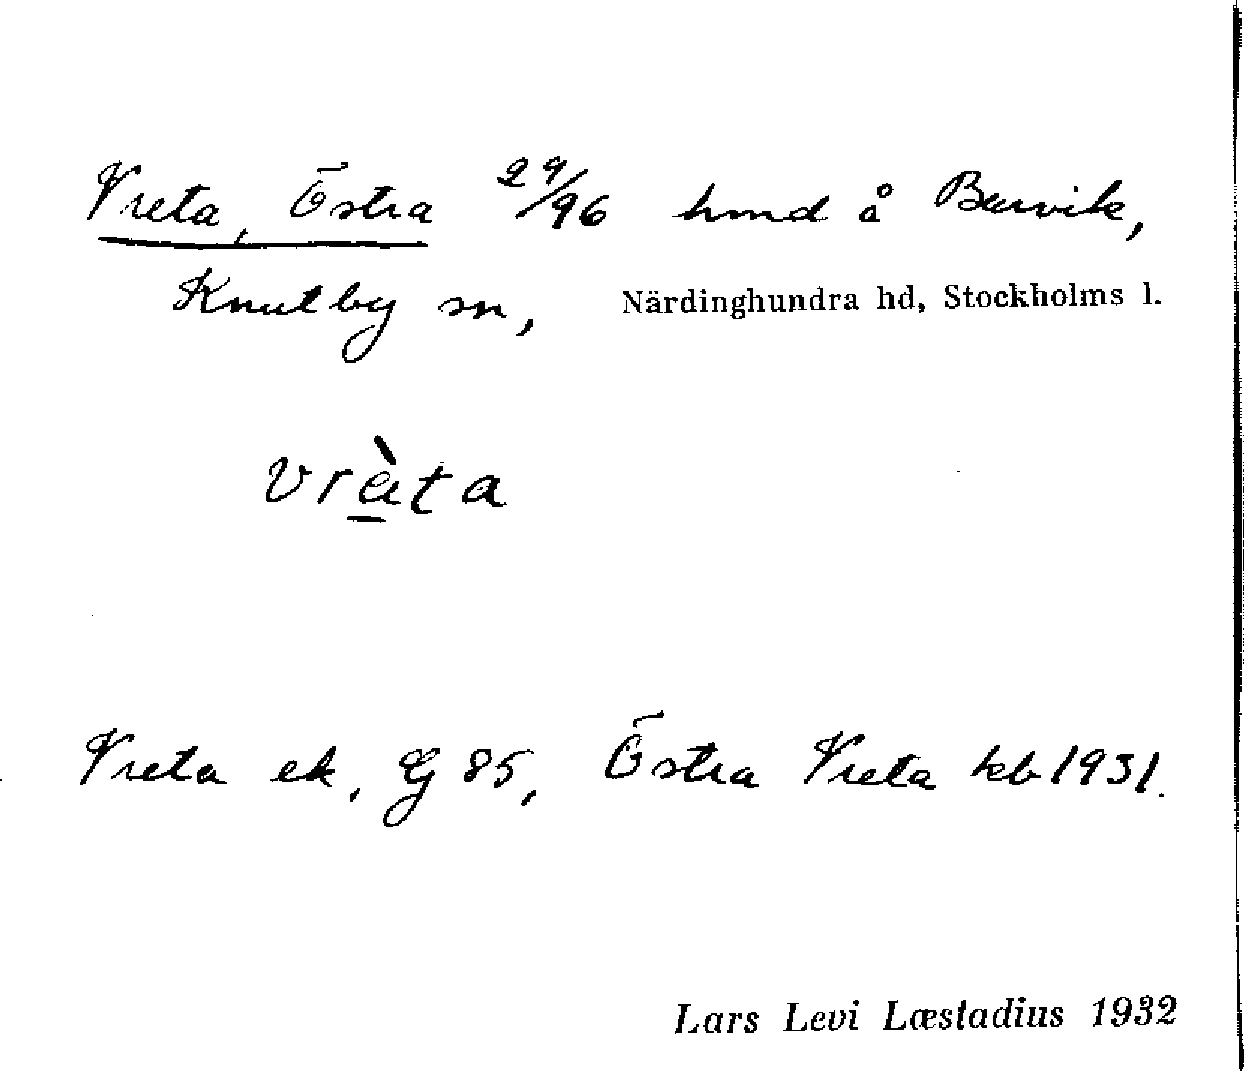 Vreta, Östra 29/96 hmd å Burvik,
Knutby sn, Närdinghundra hd, Stockholms l.
vrèta
Vreta ek, G 85, Östra Vreta kb 1931.
Lars Levi Læstadius 1932